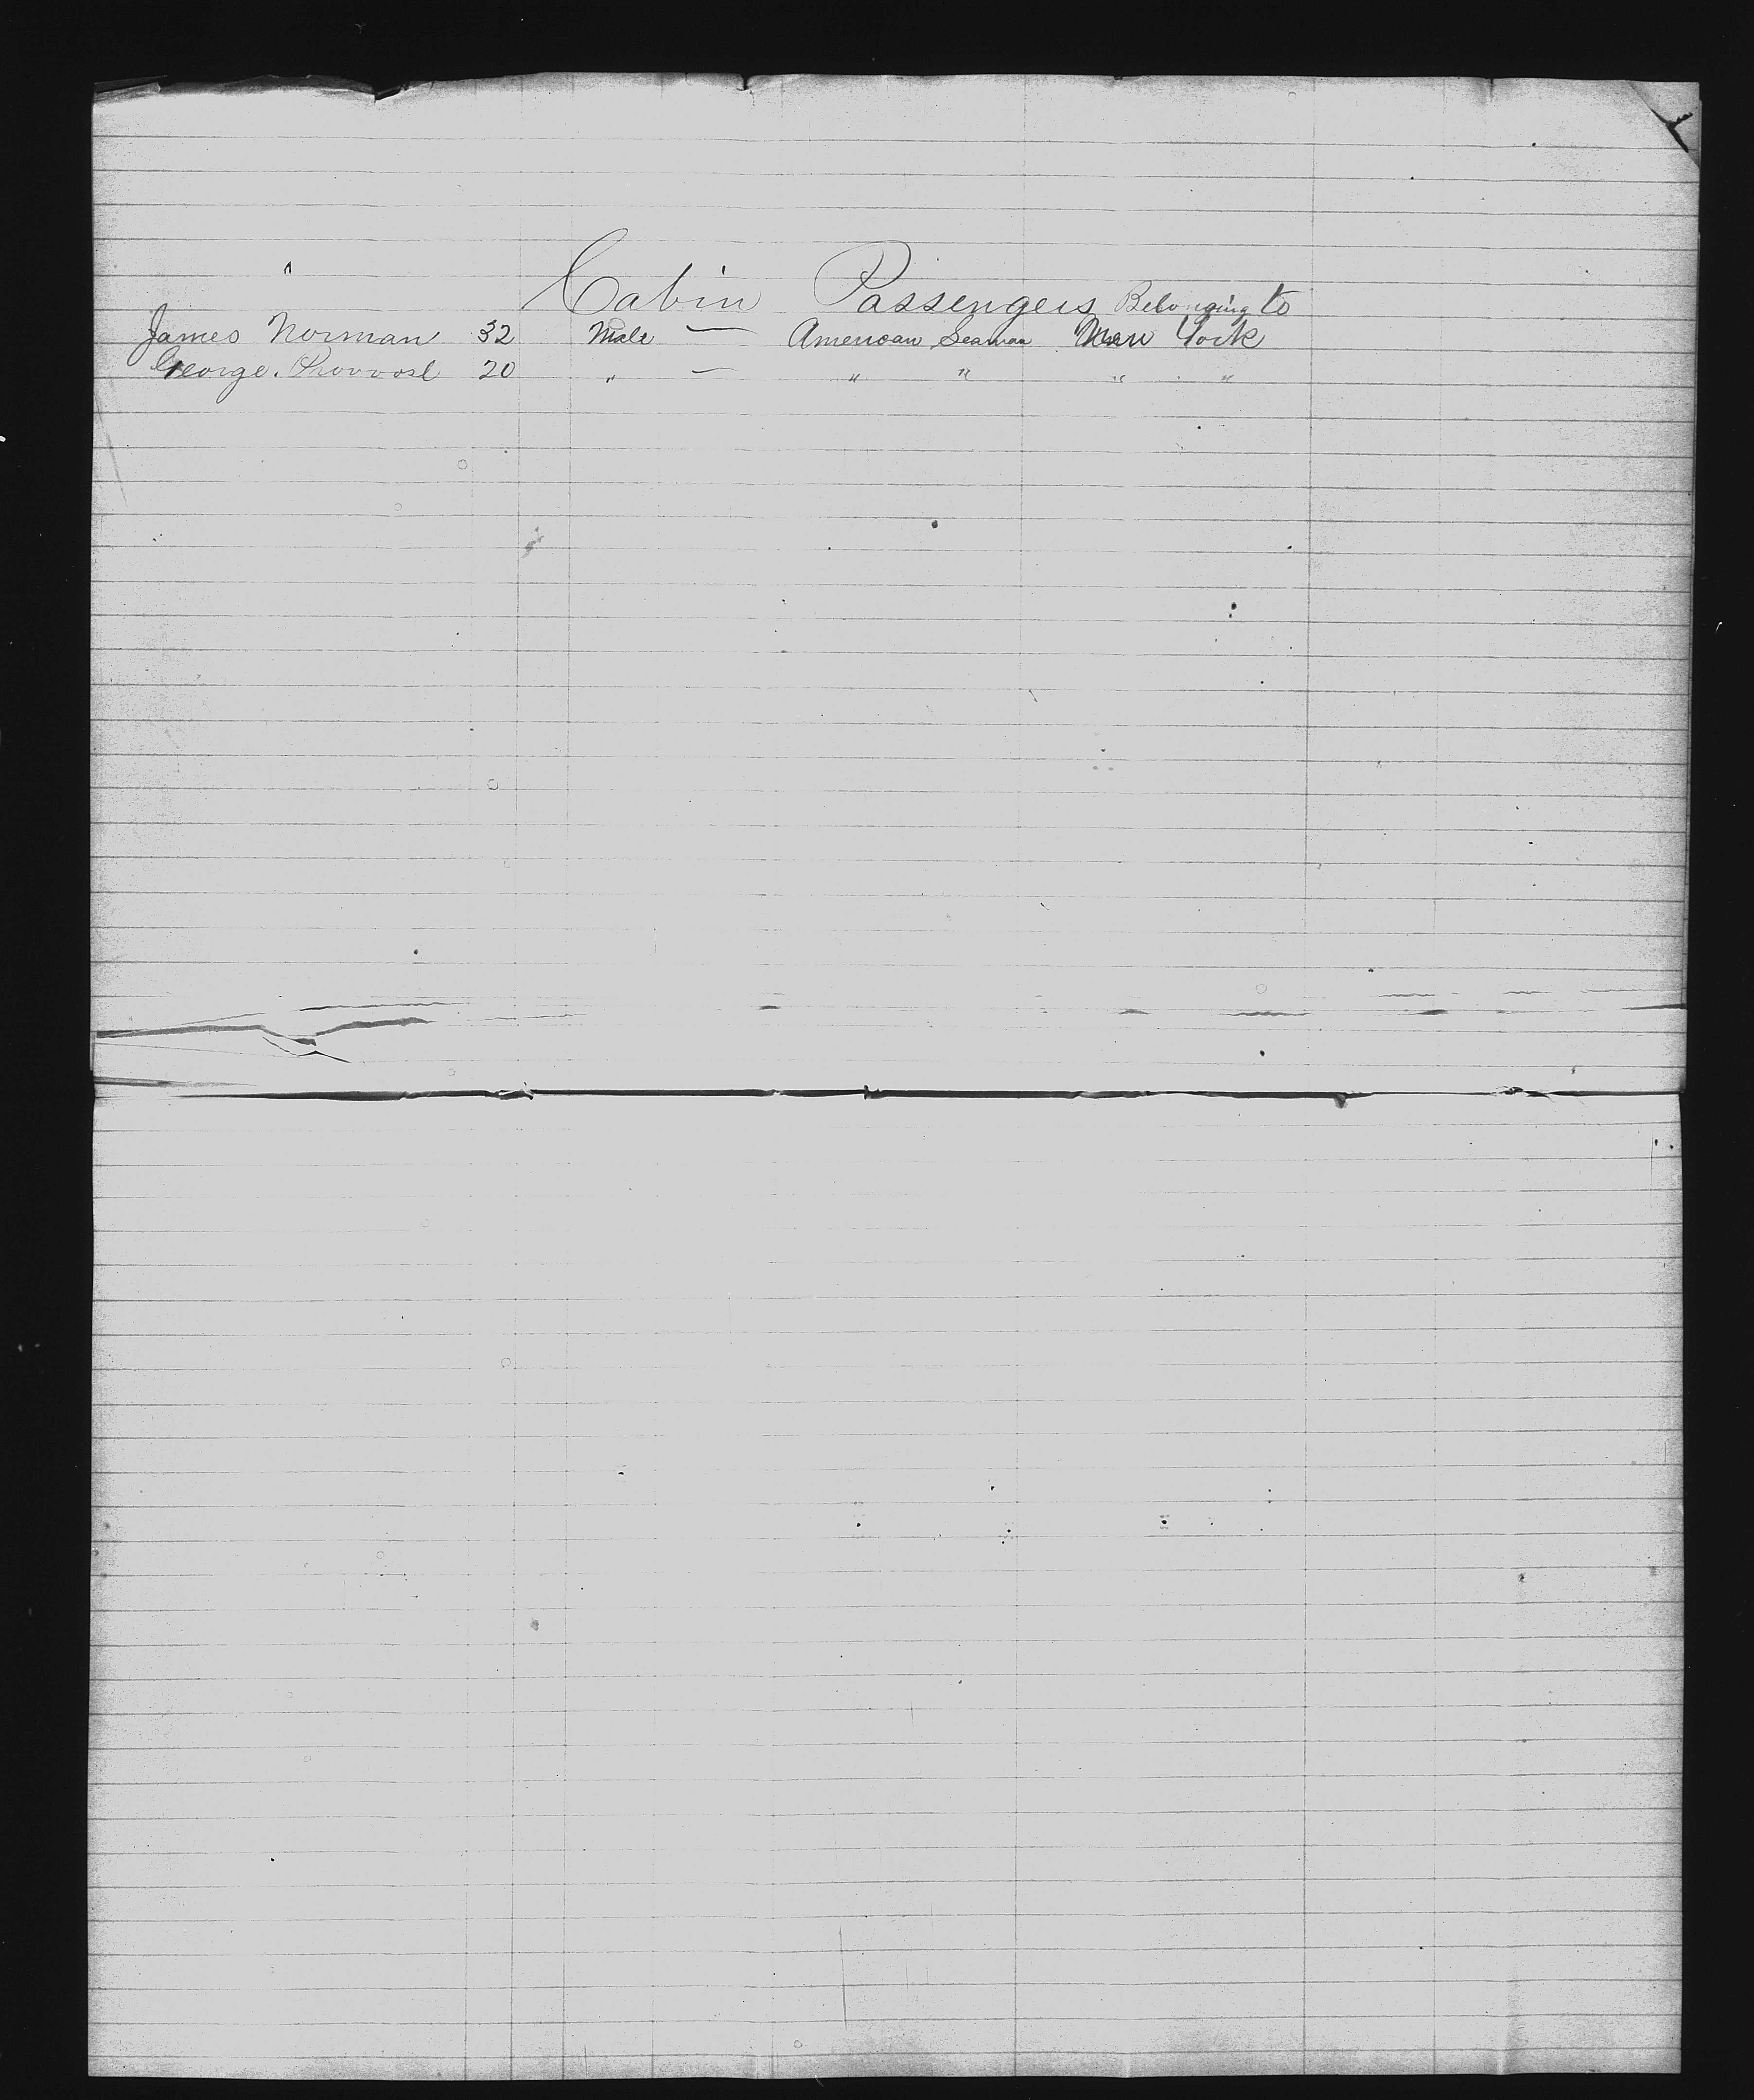 Cabin Passengers Belonging to
James Norman 32 Male — American Seaman New York
George. Provost 20 " — " " " "